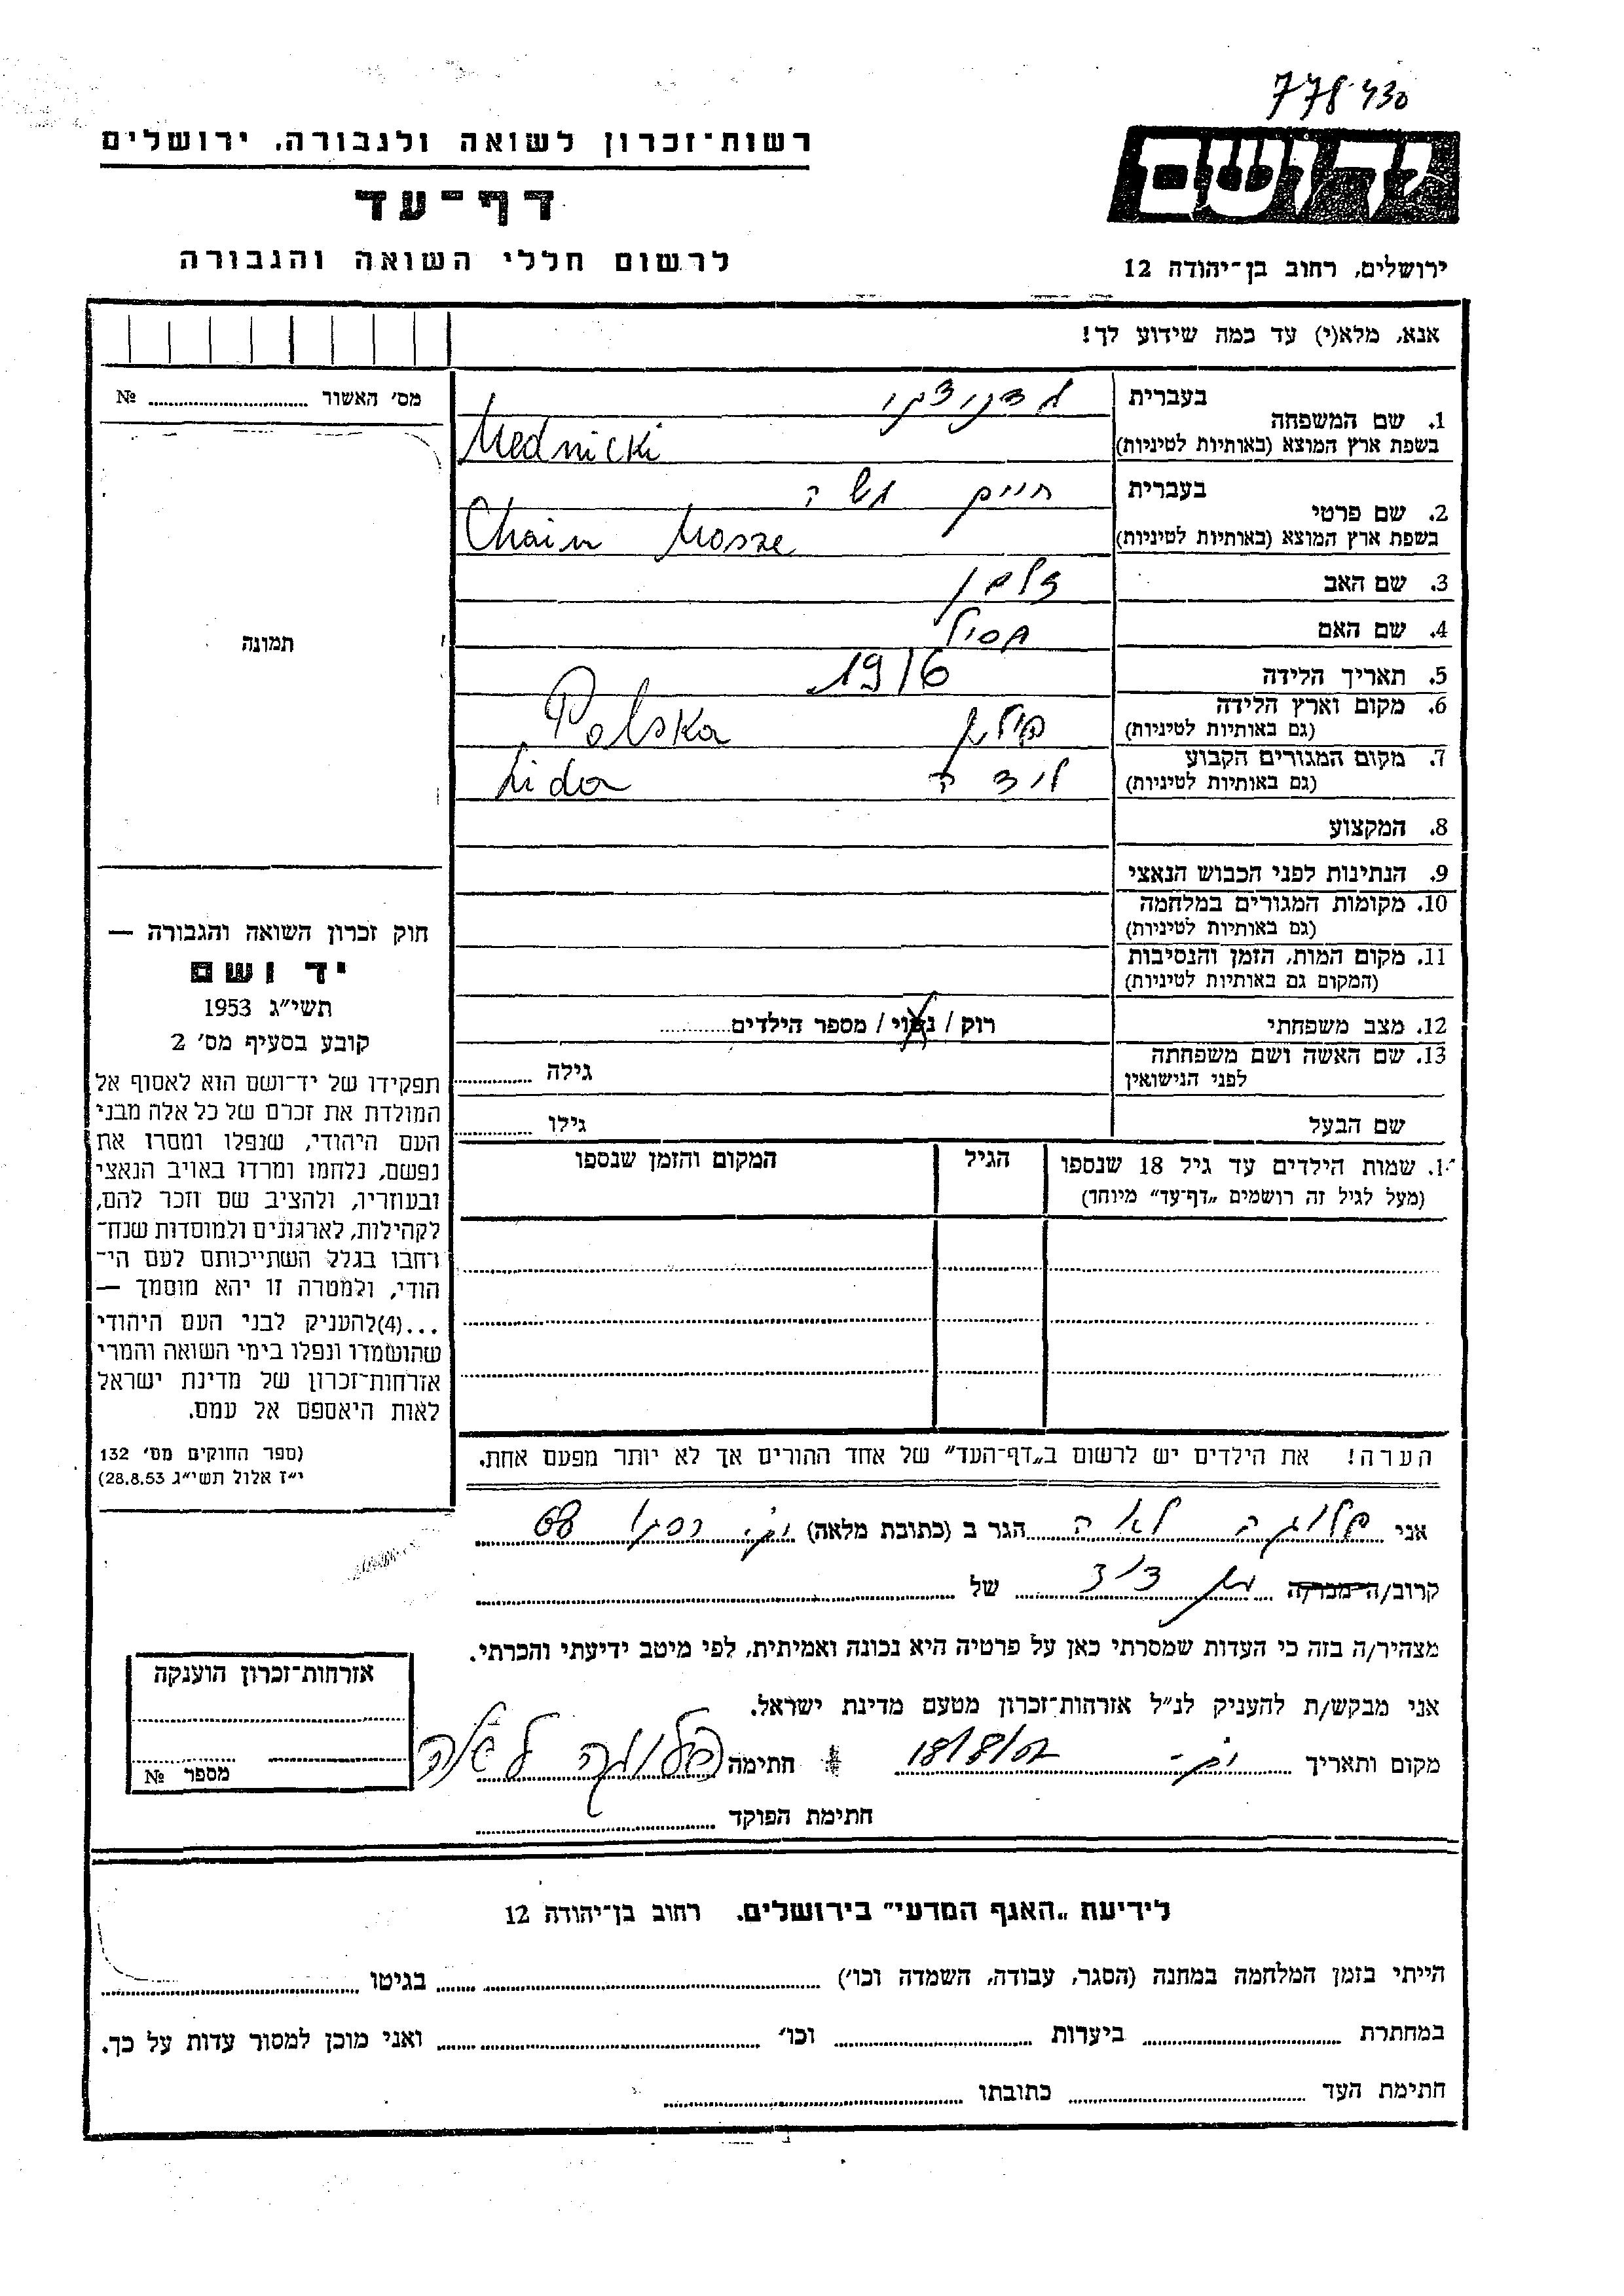 778430
רשות-זכרון לשואה ולגבורה. ירושלים
דף-עד
לרשום חללי השואה והגבורה
יד ושם
ירושלים, רחוב בן-יהודה 12
אנא, מלא(י) עד כמה שידוע לך!
מס' האשור № 
תמונה
חוק זכרון השואה והגבורה —
יד ושם
תשי"ג 1953
קובע בסעיף מס' 2
תפקידו של יד-ושם הוא לאסוף אל
המולדת את זכרם של כל אלה מבני
העם היהודי, שנפלו ומסרו את
נפשם, נלחמו ומרדו באויב הנאצי
ובעוזריו, ולהציב שם וזכר להם,
לקהילות, לארגונים ולמוסדות שנח-
רחבו בגלל השתייכותם לעם הי-
הודי, ולמטרה זו יהא מוסמך —
...(4)להעניק לבני העם היהודי
שהושמדו ונפלו בימי השואה והמרי
אזרחות-זכרון של מדינת ישראל
לאות היאספם אל עמם.
(ספר החוקים מס' 132
י"ז אלול תשי"ג 28.8.53)
בעברית
1. שם המשפחה
בשפת ארץ המוצא (באותיות לטיניות) Mednicki
בעברית חיים משה
2. שם פרטי
בשפת ארץ המוצא (באותיות לטיניות) Chaim Mosze
3. שם האב זלמן
4. שם האם
5. תאריך הלידה 1916
6. מקום וארץ הלידה פולין Polska
(גם באותיות לטיניות)
7. מקום המגורים הקבוע לידה Lida
(גם באותיות לטיניות)
8. המקצוע
9. הנתינות לפני הכבוש הנאצי
10. מקומות המגורים במלחמה
(גם באותיות לטיניות)
11. מקום המות, הזמן והנסיבות
(המקום גם באותיות לטיניות)
12. מצב משפחתי רוק / נשוי / מספר הילדים
13. שם האשה ושם משפחתה
לפני הנישואין גילה
שם הבעל גילו
1. שמות הילדים עד גיל 18 שנספו הגיל המקום והזמן שנספו
(מעל לגיל זה רושמים „דף-עד" מיוחד)
הערה! את הילדים יש לרשום ב„דף-העד" של אחד ההורים אך לא יותר מפעם אחת.
אני לאה הגר ב (כתובת מלאה) 68
קרוב/ה-מכר/ה בן דוד של
מצהיר/ה בזה כי העדות שמסרתי כאן על פרטיה היא נכונה ואמיתית, לפי מיטב ידיעתי והכרתי.
אני מבקש/ת להעניק לנ"ל אזרחות-זכרון מטעם מדינת ישראל.
מקום ותאריך חתימה לאה
חתימת הפוקד
אזרחות-זכרון הוענקה
מספר №
לידיעת „האגף המדעי" בירושלים. רחוב בן-יהודה 12
הייתי בזמן המלחמה במחנה (הסגר, עבודה, השמדה וכו') בגיטו
במחתרת ביערות וכו' ואני מוכן למסור עדות על כך.
חתימת העד כתובתו